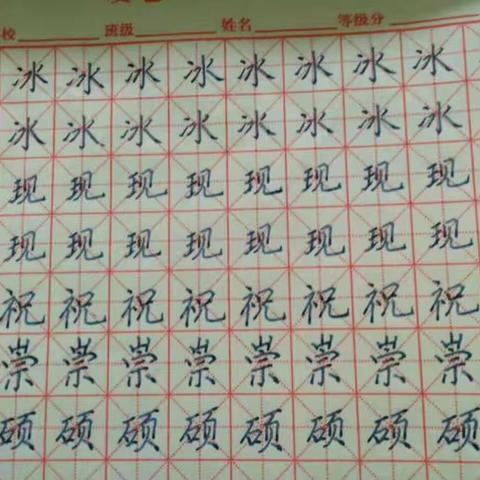 校 班级 姓名 等级分
冰冰冰冰冰冰冰冰
冰冰冰冰冰冰冰冰
现现现现现现现现
现现现现现现现现
祝祝祝祝祝祝祝祝
崇崇崇崇崇崇崇崇
硕硕硕硕硕硕硕硕